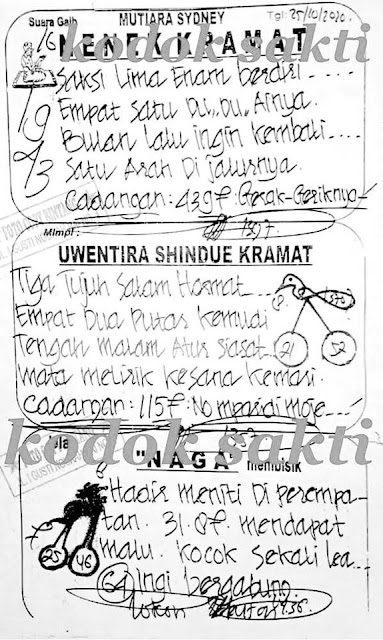 Suara Gaib MUTIARA SYDNEY Tgl: 25/10/2020.
NENEK KRAMAT
kodok sakti
16
Saksi Lima Enam berdiri
19
Empat satu Du,, Du,, Airnya.
Bulan lalu ingin kembali....
73
Satu Arah Di jalurnya.
Cadangan: 439f: Gerak-Geriknya
Mimpi: 1397.
UWENTIRA SHINDUE KRAMAT
Tiga Tujuh Salam Hormat
Empat Dua Putas Kemudi
Tengah malam Atur siasat
21 52
mata melirik kesana kemari.
Cadangan: 115f: No
kodok sakti
"NAGA" membisik
Hadir meniti Di perempa-
tan. 31. 8f. mendapat
25 46
malu. Kocok sekali
64 Ingi bergabung